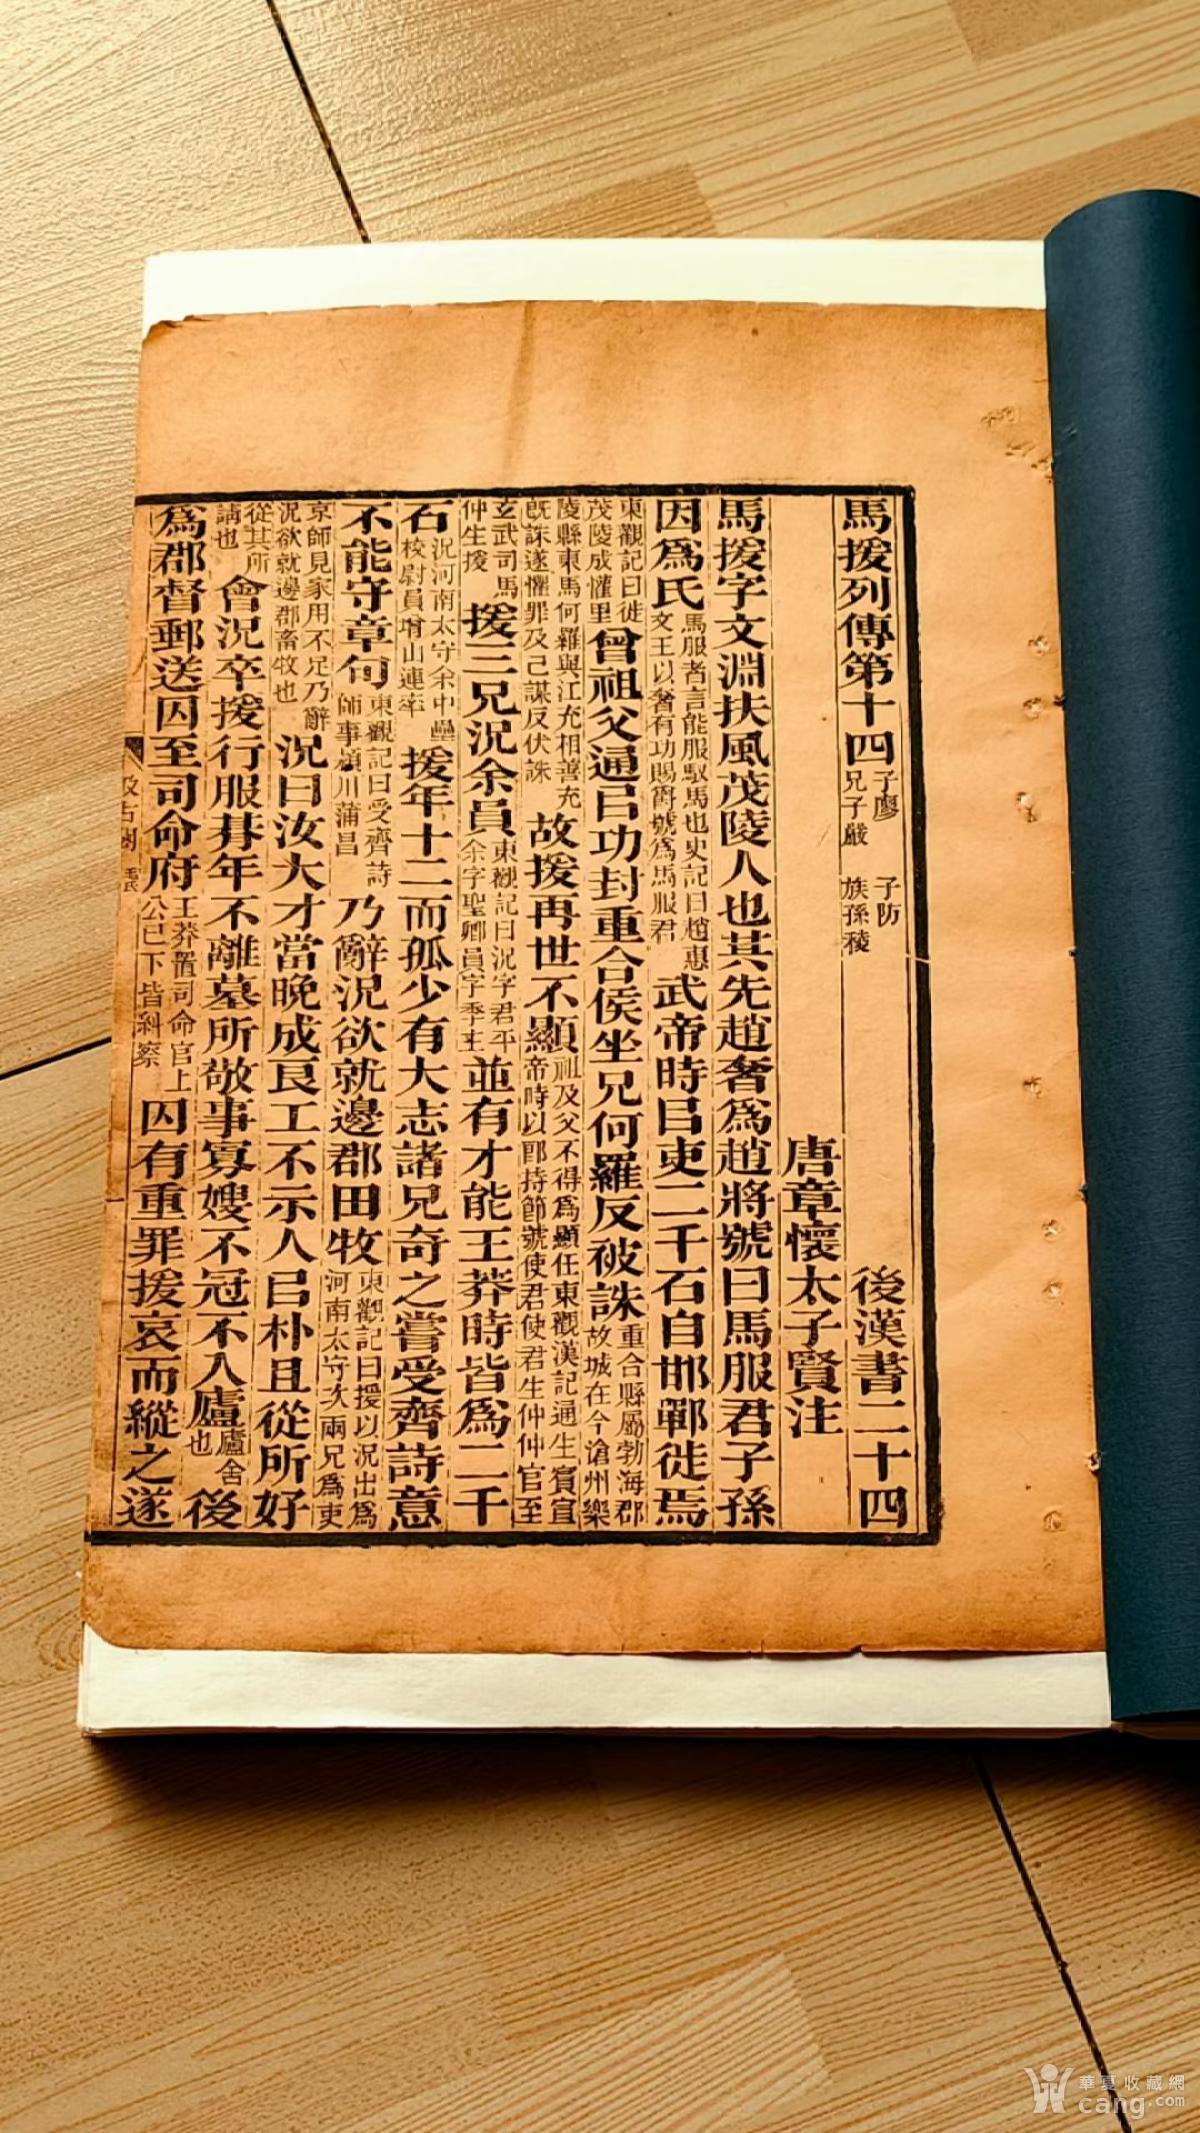 馬援列傳第十四 子廖 子防 兄子嚴 族孫稜 後漢書二十四
唐章懷太子賢注
馬援字文淵扶風茂陵人也其先趙奢爲趙將號曰馬服君子孫
因爲氏馬服者言能服馭馬也史記曰趙惠文王以奢有功賜爵號爲馬服君武帝時㠯吏二千石自邯鄲徙焉
東觀記曰徙茂陵成懽里曾祖父通㠯功封重合侯坐兄何羅反被誅重合縣屬勃海郡故城在今滄州樂
陵縣東馬何羅與江充相善充旣誅遂懼罪及己謀反伏誅故援再世不顯祖及父不得爲顯任東觀漢記通生賓宣帝時以郎持節號使君使君生仲仲官至
玄武司馬仲生援援三兄況余員東觀記曰況字君平余字聖卿員字季主並有才能王莽時皆爲二千
石況河南太守余中壘校尉員增山連率援年十二而孤少有大志諸兄奇之嘗受齊詩意
不能守章句東觀記曰受齊詩師事潁川蒲昌乃辭況欲就邊郡田牧東觀記曰援以況出爲河南太守次兩兄爲吏
京師見家用不足乃辭況欲就邊郡畜牧也況曰汝大才當晚成良工不示人㠯朴且從所好
從其所請也會況卒援行服朞年不離墓所敬事寡嫂不冠不入廬廬舍也後
爲郡督郵送囚至司命府王莽置司命官上公已下皆糾察囚有重罪援哀而縱之遂
汲古閣 毛氏
華夏收藏網
cang.com